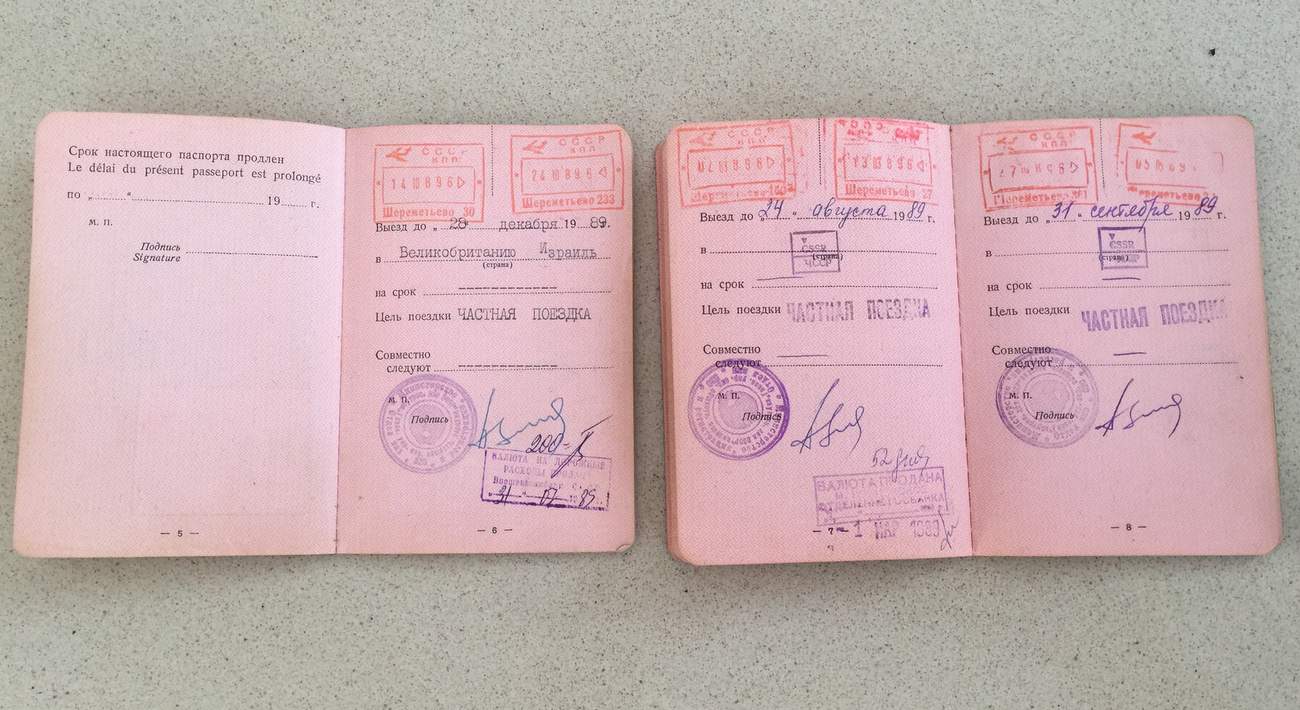 Срок настоящего паспорта продлен
Le délai du présent passeport est prolongé
по „ “ 19 г.
м. п.
Подпись
Signature
— 5 —
СССР
КПП
14 10 8 9 6
Шереметьево 30
СССР
КПП
24 10 8 9 6
Шереметьево 233
Выезд до „ 28 декабря 19 89.
в Великобританию Израиль
(страна)
на срок
Цель поездки ЧАСТНАЯ ПОЕЗДКА
Совместно
следуют
м. п.
Подпись
200-
ВАЛЮТА НА ДОРОЖНЫЕ
РАСХОДЫ ПРОДАНА
31 07 1989
— 6 —
СССР
КПП
Шереметьево
СССР
КПП
Шереметьево 27
Выезд до „24 “ августа 1989 г.
в
CSSR
ЧССР
(страна)
на срок
Цель поездки ЧАСТНАЯ ПОЕЗДКА
Совместно
следуют
м. п.
Подпись
ВАЛЮТА ПРОДАНА
ОТДЕЛЕНИЕ ГОСБАНКА
— 7 —
1 МАР 1989
СССР
КПП
Шереметьево
Шереметьево
Выезд до „31 “ сентября 1989 г.
в
CSSR
(страна)
на срок
Цель поездки ЧАСТНАЯ ПОЕЗДКА
Совместно
следуют
м. п.
Подпись
— 8 —